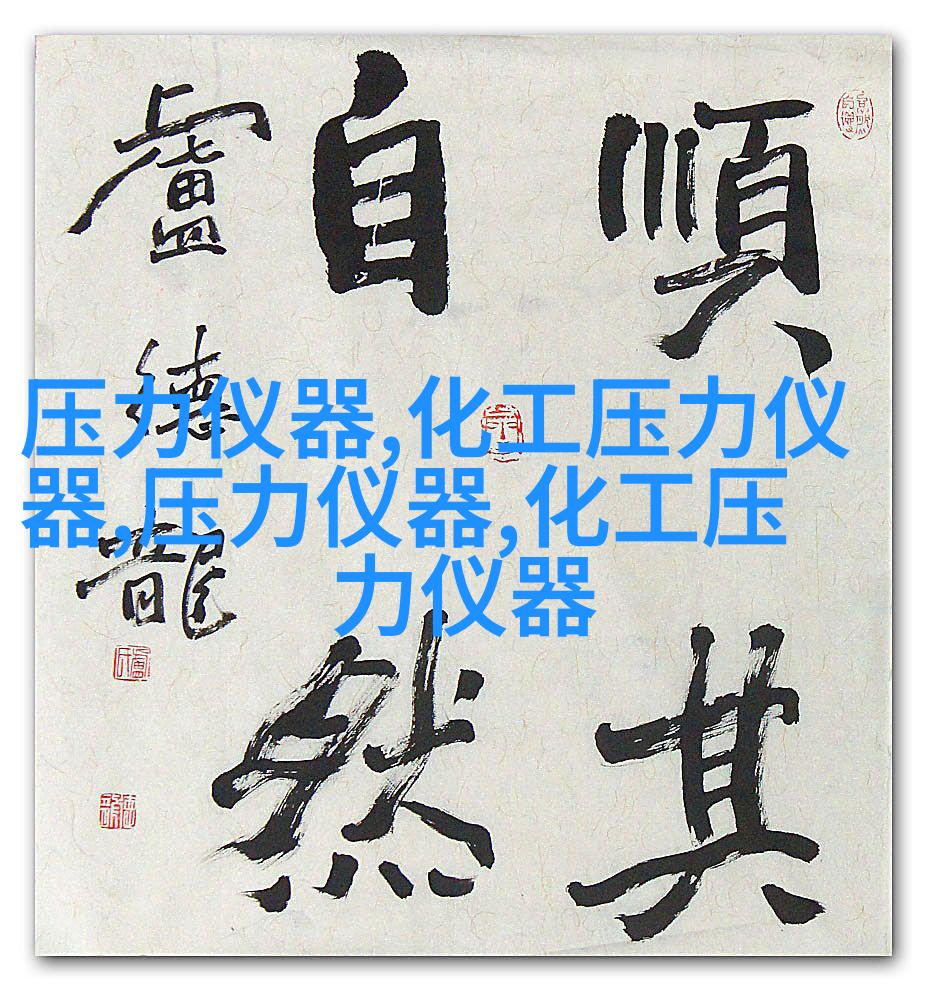 順其
自然
盧德龍
压力仪器,化工压力仪
器,压力仪器,化工压
力仪器